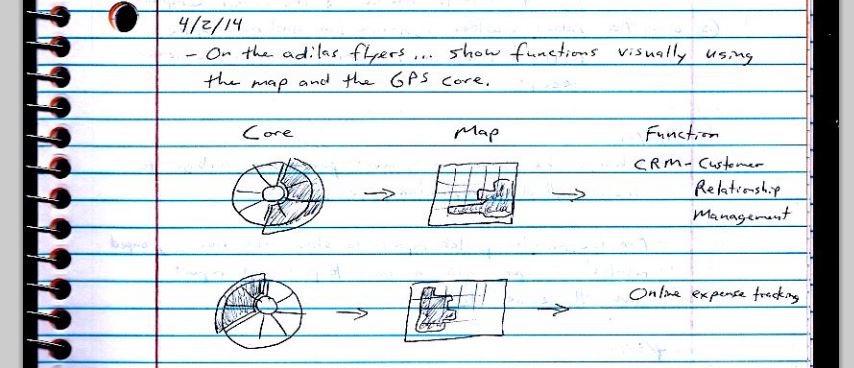 4/2/14
- On the adilas flyers... show functions visually using
the map and the GPS core.
Core Map Function
CRM - Customer
Relationship
Management
Online expense tracking